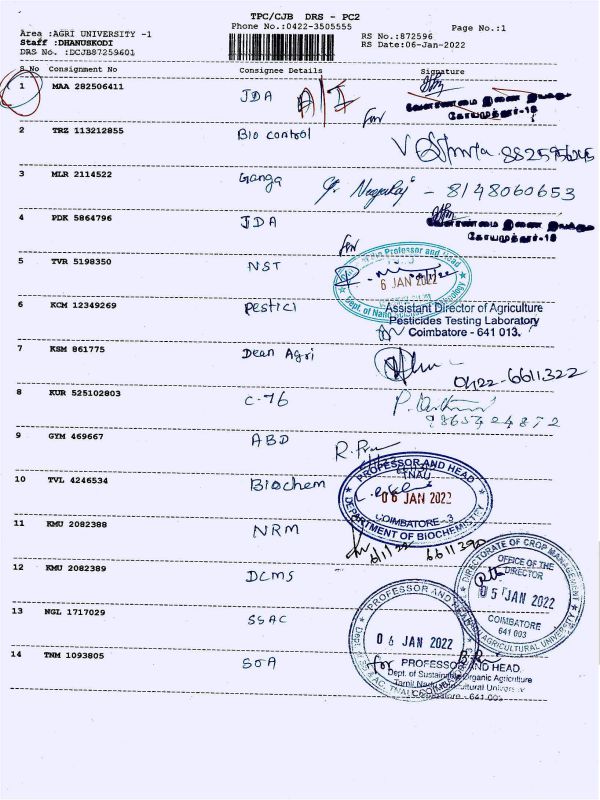 TPC/CJB DRS - PC2
Phone No.:0422-3505555
Page No.:1
Area :AGRI UNIVERSITY -1
Staff :DHANUSKODI
DRS No. :DCJB87259601
RS No.:872596
RS Date:06-Jan-2022
S.No Consignment No Consignee Details Signature
1 MAA 282506411 JDA
கோயமுத்தூர்-13
2 TRZ 113212855 Bio control
8825956045
3 MLR 2114522 Ganga Nagaraj - 8148060653
4 PDK 5864796 JDA
கோயமுத்தூர்-13
for
5 TVR 5198350 NST
Professor and Head
6 JAN 2022
Dept. of Nano
6 KCM 12349269 pestici
Assistant Director of Agriculture
Pesticides Testing Laboratory
Coimbatore - 641 013.
7 KSM 861775 Dean Agri
0422-6611322
8 KUR 525102803 C-76
9865424872
9 GYM 469667 ABD
10 TVL 4246534 Biochem
PROFESSOR AND HEAD
TNAU
06 JAN 2022
COIMBATORE - 3
DEPARTMENT OF BIOCHEMISTRY
11 KMU 2082388 NRM
6/1/22 6611390
12 KMU 2082389 DCMS
DIRECTORATE OF CROP MANAGEMENT
OFFICE OF THE
DIRECTOR
05 JAN 2022
COIMBATORE
641 003
AGRICULTURAL UNIVERSITY
13 NGL 1717029 SSAC
PROFESSOR AND
06 JAN 2022
14 TNM 1093805 SOA
for PROFESSOR AND HEAD
Dept. of Sustainable Organic Agriculture
Tamil Nadu Agricultural University
Coimbatore - 641 003